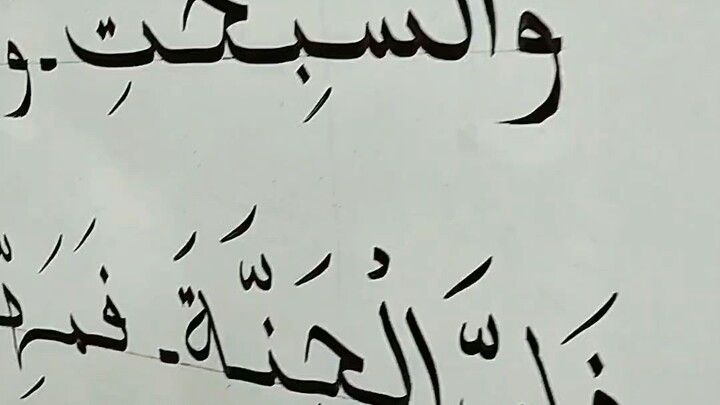 والسبحتِ. و
فَإِنَّ الْجَنَّةَ. فَمَهِّ